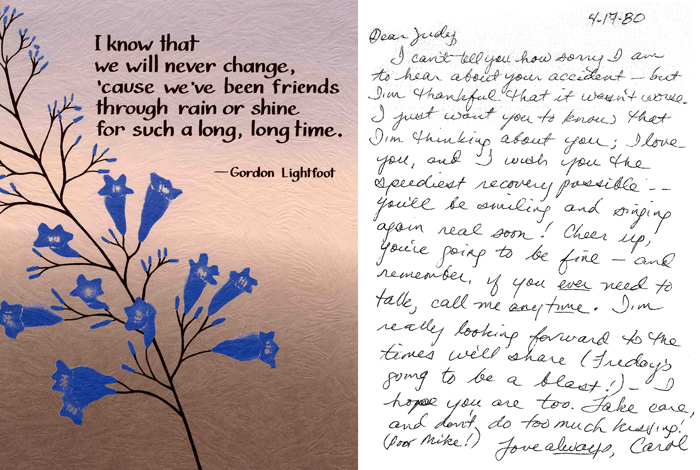 I know that
we will never change,
'cause we've been friends
through rain or shine
for such a long, long time.
—Gordon Lightfoot
4-17-80
Dear Judy
I can't tell you how sorry I am
to hear about your accident — but
I'm thankful that it wasn't worse.
I just want you to know that
I'm thinking about you; I love
you, and I wish you the
speediest recovery possible --
you'll be smiling and singing
again real soon! Cheer up,
you're going to be fine — and
remember, if you ever need to
talk, call me anytime. I'm
really looking forward to the
times we'll share (Friday's
going to be a blast!) — I
hope you are too. Take care,
and don't do too much kissing!
(Poor Mike!) Love always, Carol